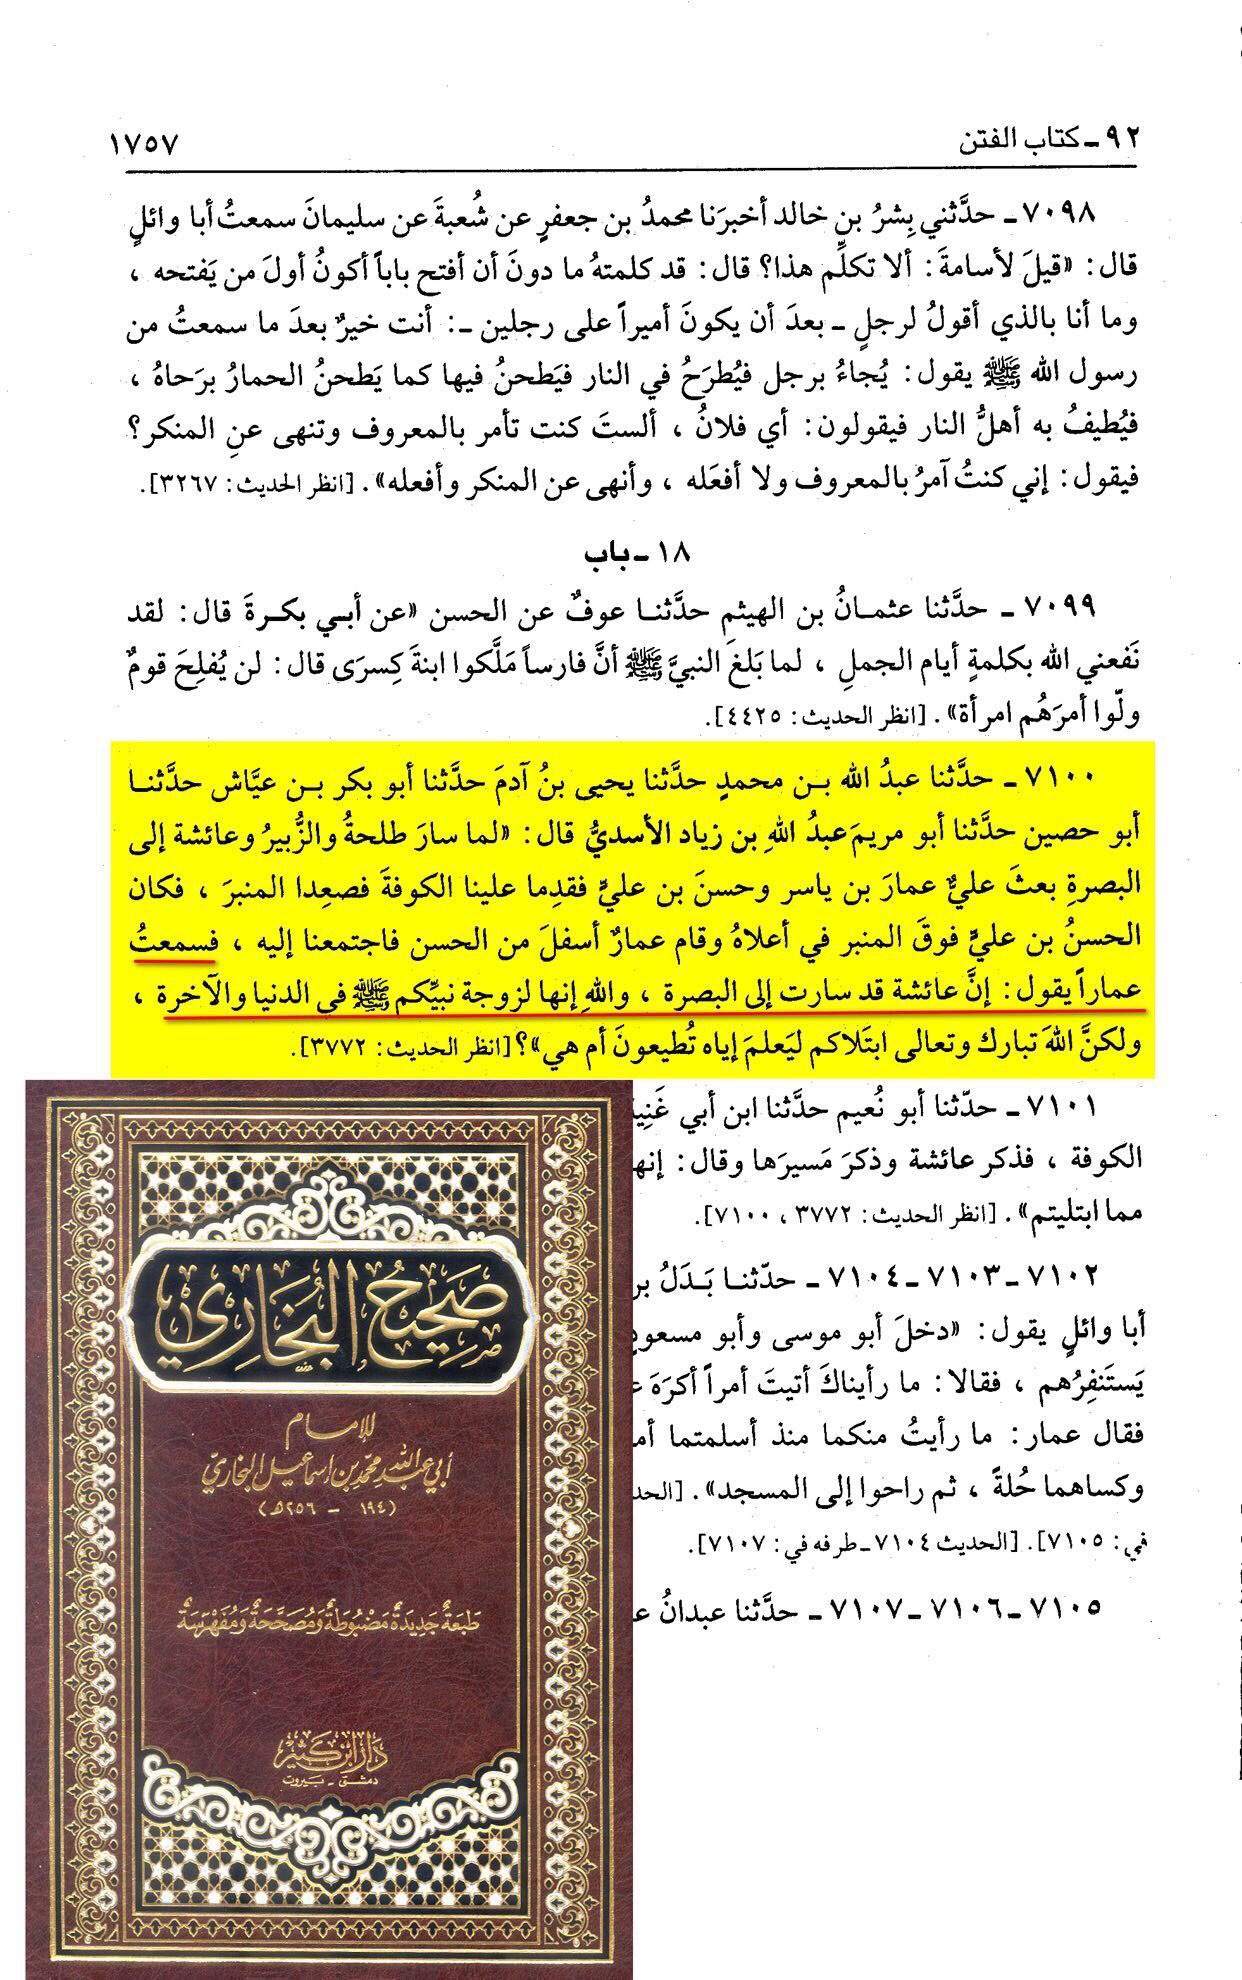 ٩٢ ـ كتاب الفتن
١٧٥٧
٧٠٩٨ ـ حدَّثني بِشرُ بن خالد أخبرَنا محمدُ بن جعفرٍ عن شُعبةَ عن سليمانَ سمعتُ أبا وائلٍ
قال: «قيلَ لأسامةَ: ألا تكلِّم هذا؟ قال: قد كلمتهُ ما دونَ أن أفتح باباً أكونُ أولَ من يَفتحه ،
وما أنا بالذي أقولُ لرجلٍ ـ بعدَ أن يكونَ أميراً على رجلين ـ: أنت خيرٌ بعدَ ما سمعتُ من
رسول الله ﷺ يقول: يُجاءُ برجل فيُطرَحُ في النار فيَطحنُ فيها كما يَطحنُ الحمارُ برَحاهُ ،
فيُطيفُ به أهلُ النار فيقولون: أي فلانُ ، ألستَ كنت تأمر بالمعروف وتنهى عنِ المنكر؟
فيقول: إني كنتُ آمرُ بالمعروف ولا أفعَله ، وأنهى عن المنكر وأفعله». [انظر الحديث: ٣٢٦٧].
١٨ ـ باب
٧٠٩٩ ـ حدَّثنا عثمـانُ بن الهيثم حدَّثنـا عوفٌ عن الحسن «عن أبـي بكـرةَ قال: لقد
نَفعني الله بكلمةٍ أيام الجملِ ، لما بَلغَ النبيَّ ﷺ أنَّ فارساً مَلَّكوا ابنةَ كِسرَى قال: لن يُفلِحَ قومٌ
ولّوا أمرَهُم امرأة». [انظر الحديث: ٤٤٢٥].
٧١٠٠ ـ حدَّثنا عبدُ الله بـن محمدٍ حدَّثنا يحيى بنُ آدمَ حدَّثنا أبو بكر بـن عيَّاش حدَّثنـا
أبو حصين حدَّثنا أبو مريمَ عبدُ اللهِ بن زياد الأسديُّ قال: «لما سارَ طلحةُ والزُّبيرُ وعائشة إلى
البصرةِ بعثَ عليٌّ عمارَ بن ياسر وحسنَ بن عليٍّ فقدِما علينا الكوفةَ فصعِدا المنبرَ ، فكان
الحسنُ بن عليٍّ فوقَ المنبر في أعلاهُ وقام عمارٌ أسفلَ من الحسن فاجتمعنا إليه ، فسمعتُ
عماراً يقول: إنَّ عائشة قد سارت إلى البصرة ، واللهِ إنها لزوجة نبيِّكم ﷺ في الدنيا والآخرة ،
ولكنَّ اللهَ تبارك وتعالى ابتَلاكم ليَعلمَ إياه تُطيعونَ أم هي»؟ [انظر الحديث: ٣٧٧٢].
٧١٠١ ـ حدّثنا أبو نُعيم حدَّثنا ابن أبي غَنِيَّ
الكوفة ، فذكر عائشة وذكرَ مَسيرَها وقال: إنه
مما ابتليتم». [انظر الحديث: ٣٧٧٢ ، ٧١٠٠].
٧١٠٢ ـ ٧١٠٣ ـ ٧١٠٤ ـ حدّثنـا بَـدَلُ بن
أبا وائلٍ يقول: «دخلَ أبو موسى وأبو مسعود
يَستَنفِرُهم ، فقالا: ما رأيناكَ أتيتَ أمراً أكرَهَ
فقال عمار: ما رأيتُ منكما منذ أسلمتما أم
وكساهما حُلةً ، ثم راحوا إلى المسجد». [الحد
في: ٧١٠٥]. [الحديث ٧١٠٤ ـ طرفه في: ٧١٠٧].
٧١٠٥ ـ ٧١٠٦ ـ ٧١٠٧ ـ حدَّثنا عبدانُ ع
صَحِيحُ البُخَارِي
للإمام
أبي عبد الله محمد بن إسماعيل البخاريّ
(١٩٤ - ٢٥٦ هـ)
طَبعَةٌ جَدِيدَةٌ مَضْبُوطَةٌ وَمُصَحَّحَةٌ وَمُفَهْرَسَةٌ
دَارُ ابْن كَثيْر
دمشق - بيروت